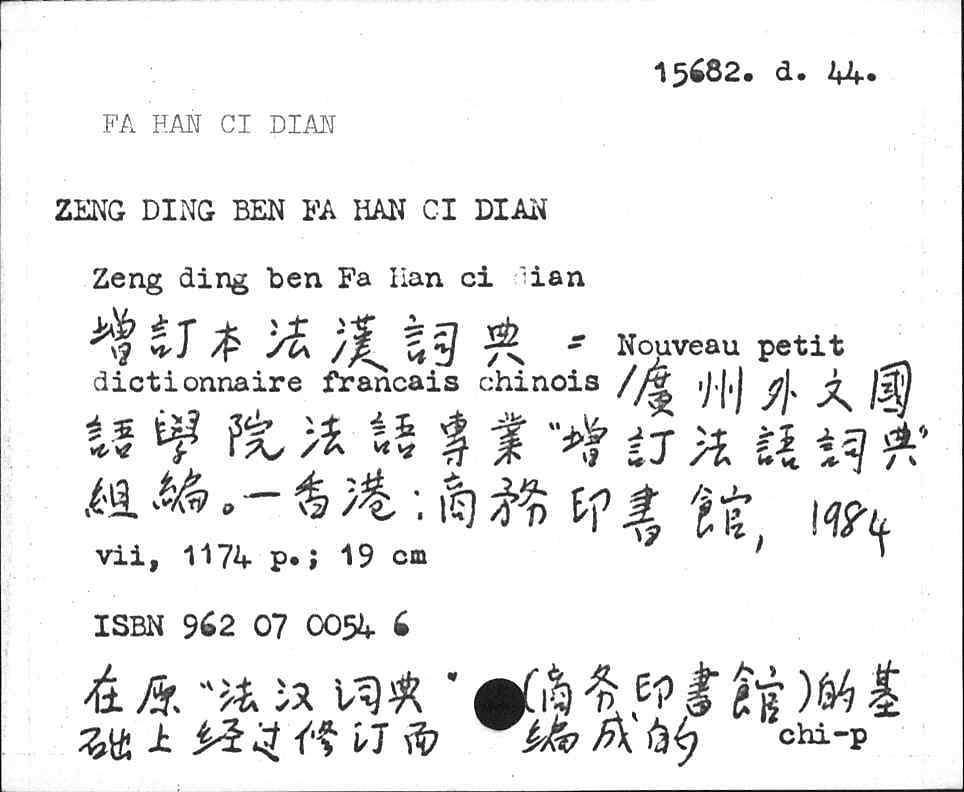 15682. d. 44.
FA HAN CI DIAN
ZENG DING BEN FA HAN CI DIAN
Zeng ding ben Fa Han ci dian
增訂本法漢詞典 = Nouveau petit
dictionnaire francais chinois /廣州外文國
語學院法語專業“增訂法語詞典”
組編。—香港:商務印書館, 1984
vii, 1174 p.; 19 cm
ISBN 962 07 0054 6
在原“法汉词典” (商务印書館)的基
础上经过修订而 编成的 chi-p